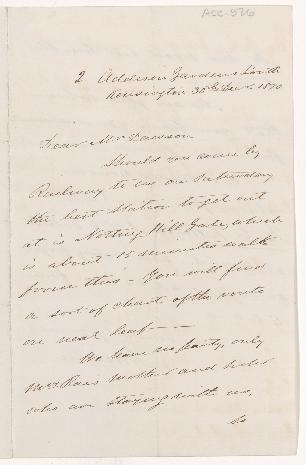 Acc-926
2 Addison Gardens South
Kensington 30th Decr 1870
Dear Mr Dawson
Should you come by
Railway to us on Saturday
the best Station to get out
at is Notting Hill Gate, which
is about 15 minutes walk
from this - You will find
a sort of chart of the route
on next leaf - -
We have no party, only
Mrs Raes mother and sister
who are staying with us,
So